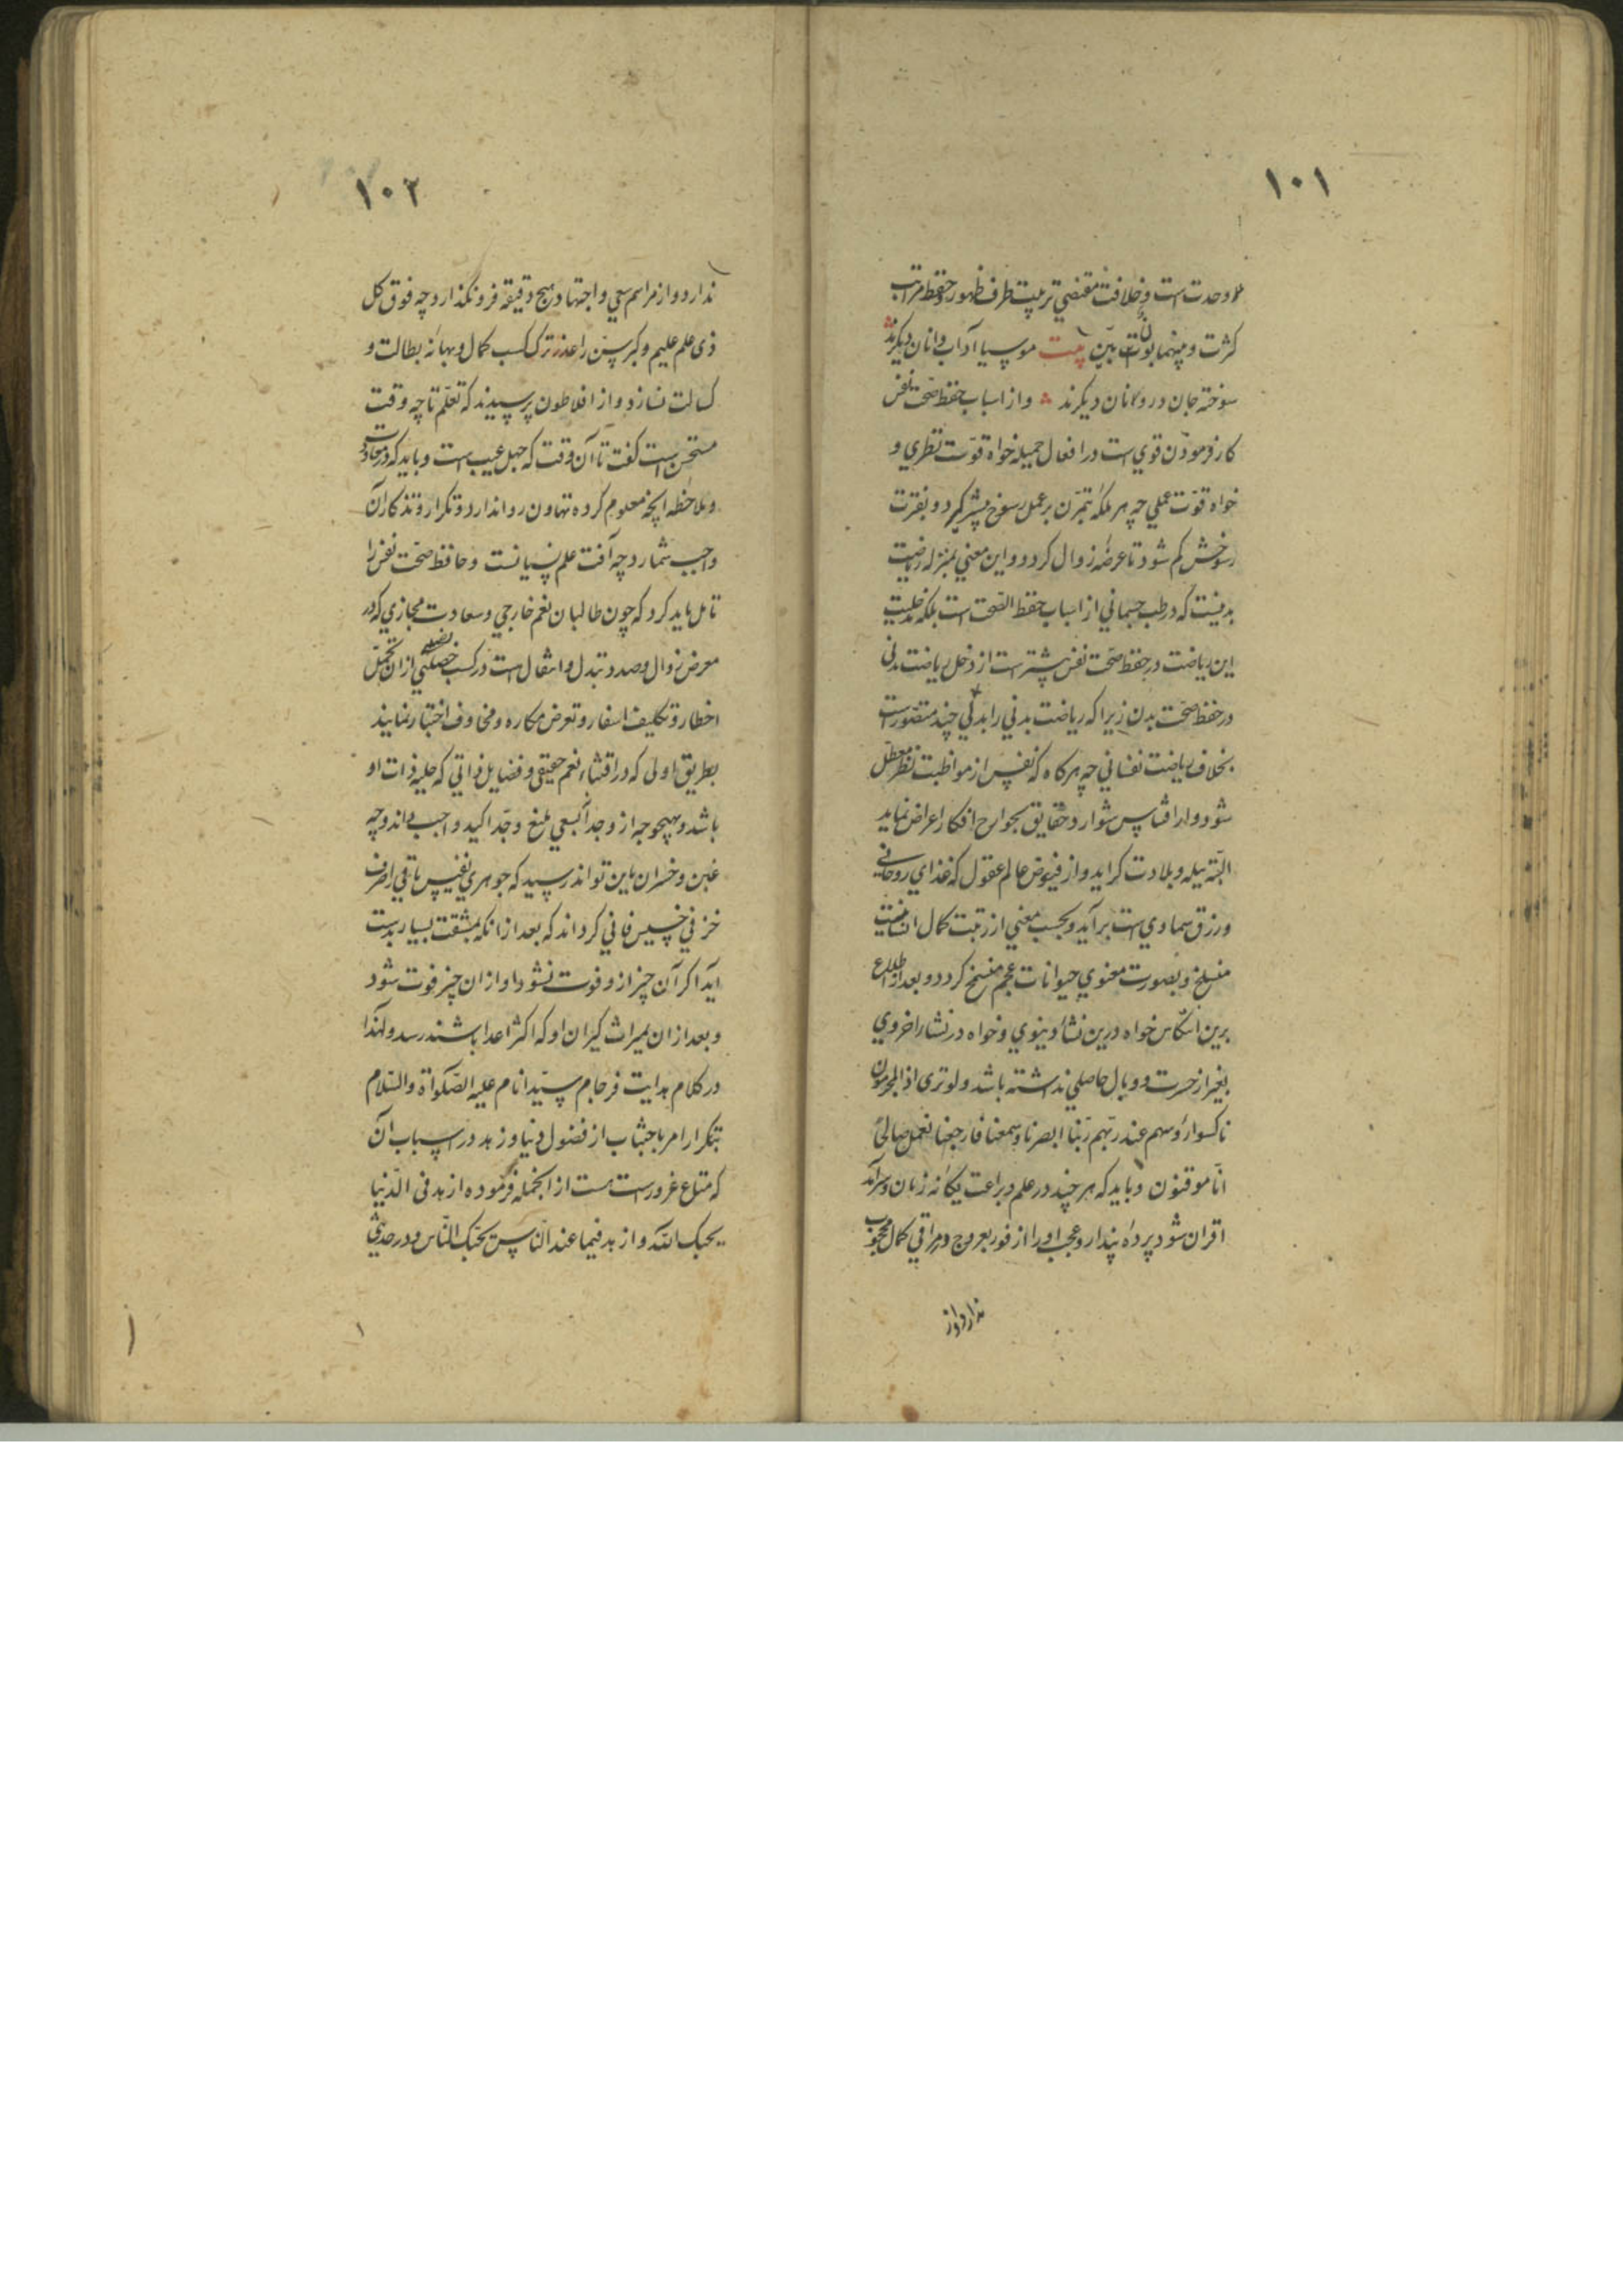 ۱۰۱
و وحدت است و خلافت مقتضی تربیت طرف ظهور و حفظ مراتب
کثرت و بینهما بون بیّن بیت موسیا آداب دانان دیکرند
سوخته جان و روانان دیکرند و از اسباب حفظ صحّت نفس
کار فرمودن قوی است در افعال جمیله خواه قوّت نظری و
خواه قوّت عملی چه هر ملکه بتمرّن بر عمل رسوخ پیشتر کیرد و بفترت
رسوخش کم شود تا عرضهٔ زوال کردد و این معنی بمنزله ریاضت
بدنیست که در طب جسمانی از اسباب حفظ الصّحت است بلکه
این ریاضت در حفظ صحّت نفس بیشتر است از دخل ریاضت بدنی
در حفظ صحّت بدن زیرا که ریاضت بدنی را بدلی چند متصوّرست
بخلاف ریاضت نفسانی چه هرکاه که نفس از مواظبت نظر معطّل
شود و از اقتباس شوارد حقایق بجوارح افکار اعراض نماید
البتّه ببله و بلادت کراید و از فیوض عالم عقول که غذای روحانی
و رزق سماوی است برآید و بحسب معنی از رتبت کمال انسانیت
منسلخ و بصورت معنوی حیوانات عجم منسخ کردد و بعد از اطلاع
برین انتکاس خواه درین نشأ دنیوی و خواه در نشأ اخروی
بغیر از حسرت و وبال حاصلی نداشته باشد ولو تری اذ المجرمون
ناکسوا رؤسهم عند ربّهم ربّنا ابصرنا و سمعنا فارجعنا نعمل صالحاً
انّا موقنون و باید که هر چند در علم و براعت یکانه زمان و سرآمد
اقران شود پردهٔ پندار و عجب او را از فور بعروج در مراقی کمال محجوب
ندارد و از
۱۰۲
ندارد و از مراسم سعی و اجتهاد هیچ دقیقه فرونکذارد چه فوق کل
ذی علم علیم و کبر سنّ را عذر ترک کسب کمال و بهانه بطالت و
کسالت نسازد و از افلاطون پرسیدند که تعلّم تا چه وقت
مستحسن است کفت تا آن وقت که جهل عیب است و باید که در معاودت
و ملاحظه آنچه معلوم کرده تهاون روا ندارد و تکرار و تذکار آن
واجب شمارد چه آفت علم نسیانست و حافظ صحّت نفس را
تامل باید کرد که چون طالبان نعم خارجی و سعادت مجازی که در
معرض زوال و صدد تبدل و انتقال است در کسب از ان تحمّل
اخطار و تکلیف اسفار و تعرض مکاره و مخاوف اختیار نمایند
بطریق اولی که در اقتناء نعم حقیقی و فضایل ذاتی که حلیه ذات او
باشد و بهیچوجه از و جدا سعی بلیغ و جدّ اکید واجب داند و چه
غبن و خسران باین تواند رسید که جوهری نفیس باقی را صرف
خزفی خسیس فانی کرداند که بعد از انکه بمشقت بسیار بدست
آید اکر آن چیز ازو فوت نشود او از ان چیز فوت شود
و بعد از ان بمیراث کیران او که اکثر اعدا باشند رسد و لهذا
در کلام هدایت فرجام سیّد انام علیه الصّلواة والسّلام
بتکرار امر باجتناب از فضول دنیا و زهد در اسباب آن
که متاع غرورست هست از انجمله فرموده ازهد فی الدّنیا
یحبک الله و ازهد فیما عند النّاس یحبّک النّاس و در حدیثی